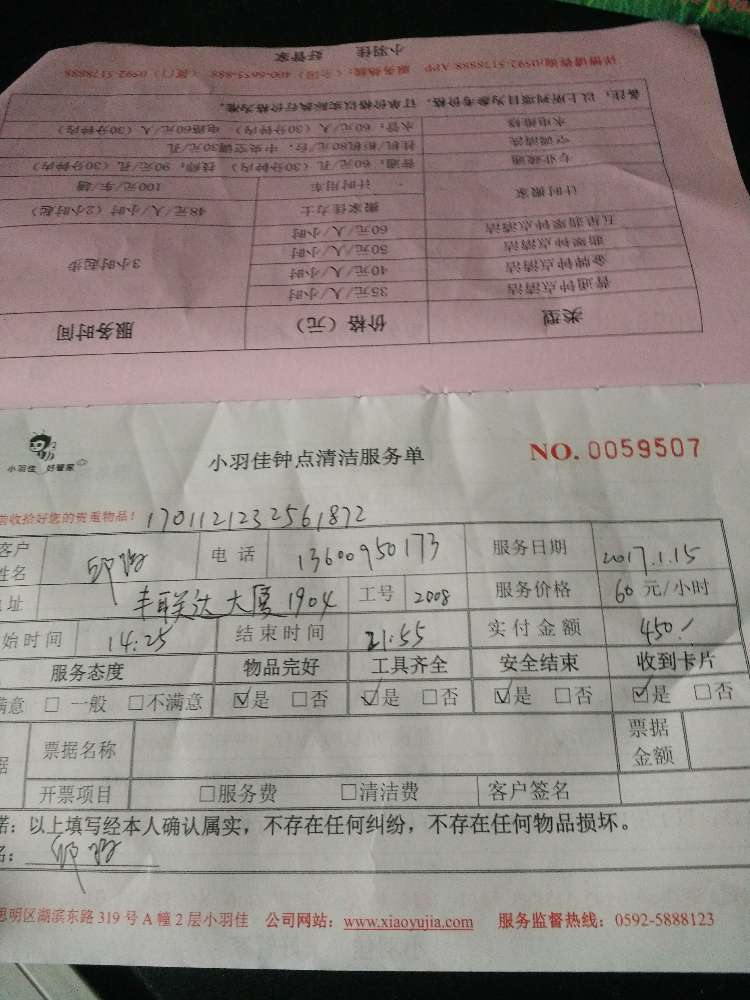 小羽佳 好管家
详情请咨询:0592-5178888 APP 服务热线:(全国)400-8655-888 (厦门)0592-5178888
备注:以上所列项目为参考价格,订单价格以实际执行价格为准。
水电维修 水管:60元/人(30分钟内) 电路60元/人(30分钟内)
空调清洗 挂机/柜机80元/台,中央空调30元/孔
专业疏通 普通:60元/孔(30分钟内) 技师:90元/孔(30分钟内)
计时搬家 计时用车 100元/车/趟
搬家佳力士 48元/人/小时(2小时起)
五星翡翠钟点清洁 60元/人/小时
翡翠钟点清洁 50元/人/小时 3小时起步
金牌钟点清洁 40元/人/小时
普通钟点清洁 35元/人/小时
类型 价格(元) 服务时间
小羽佳 好管家
小羽佳钟点清洁服务单 NO. 0059507
收拾好您的贵重物品! 1701121232561872
客户姓名 电话 13600950173 服务日期 2017.1.15
址 丰联达大厦1904 工号 2008 服务价格 60元/小时
始时间 14:25 结束时间 21:55 实付金额 450.
服务态度 物品完好 工具齐全 安全结束 收到卡片
满意 □一般 □不满意 ☑是 □否 ☑是 □否 ☑是 □否 ☑是 □否
据 票据名称 票据金额
开票项目 □服务费 □清洁费 客户签名
诺:以上填写经本人确认属实,不存在任何纠纷,不存在任何物品损坏。
名:
思明区湖滨东路319号A幢2层小羽佳 公司网站:www.xiaoyujia.com 服务监督热线:0592-5888123